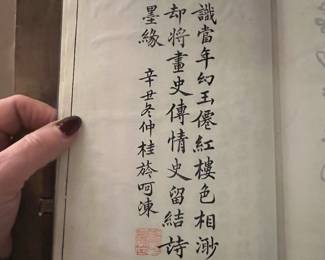 識當年幻玉僊紅樓色相渺
却將畫史傳情史留結詩
墨緣
辛丑冬仲桂於呵凍